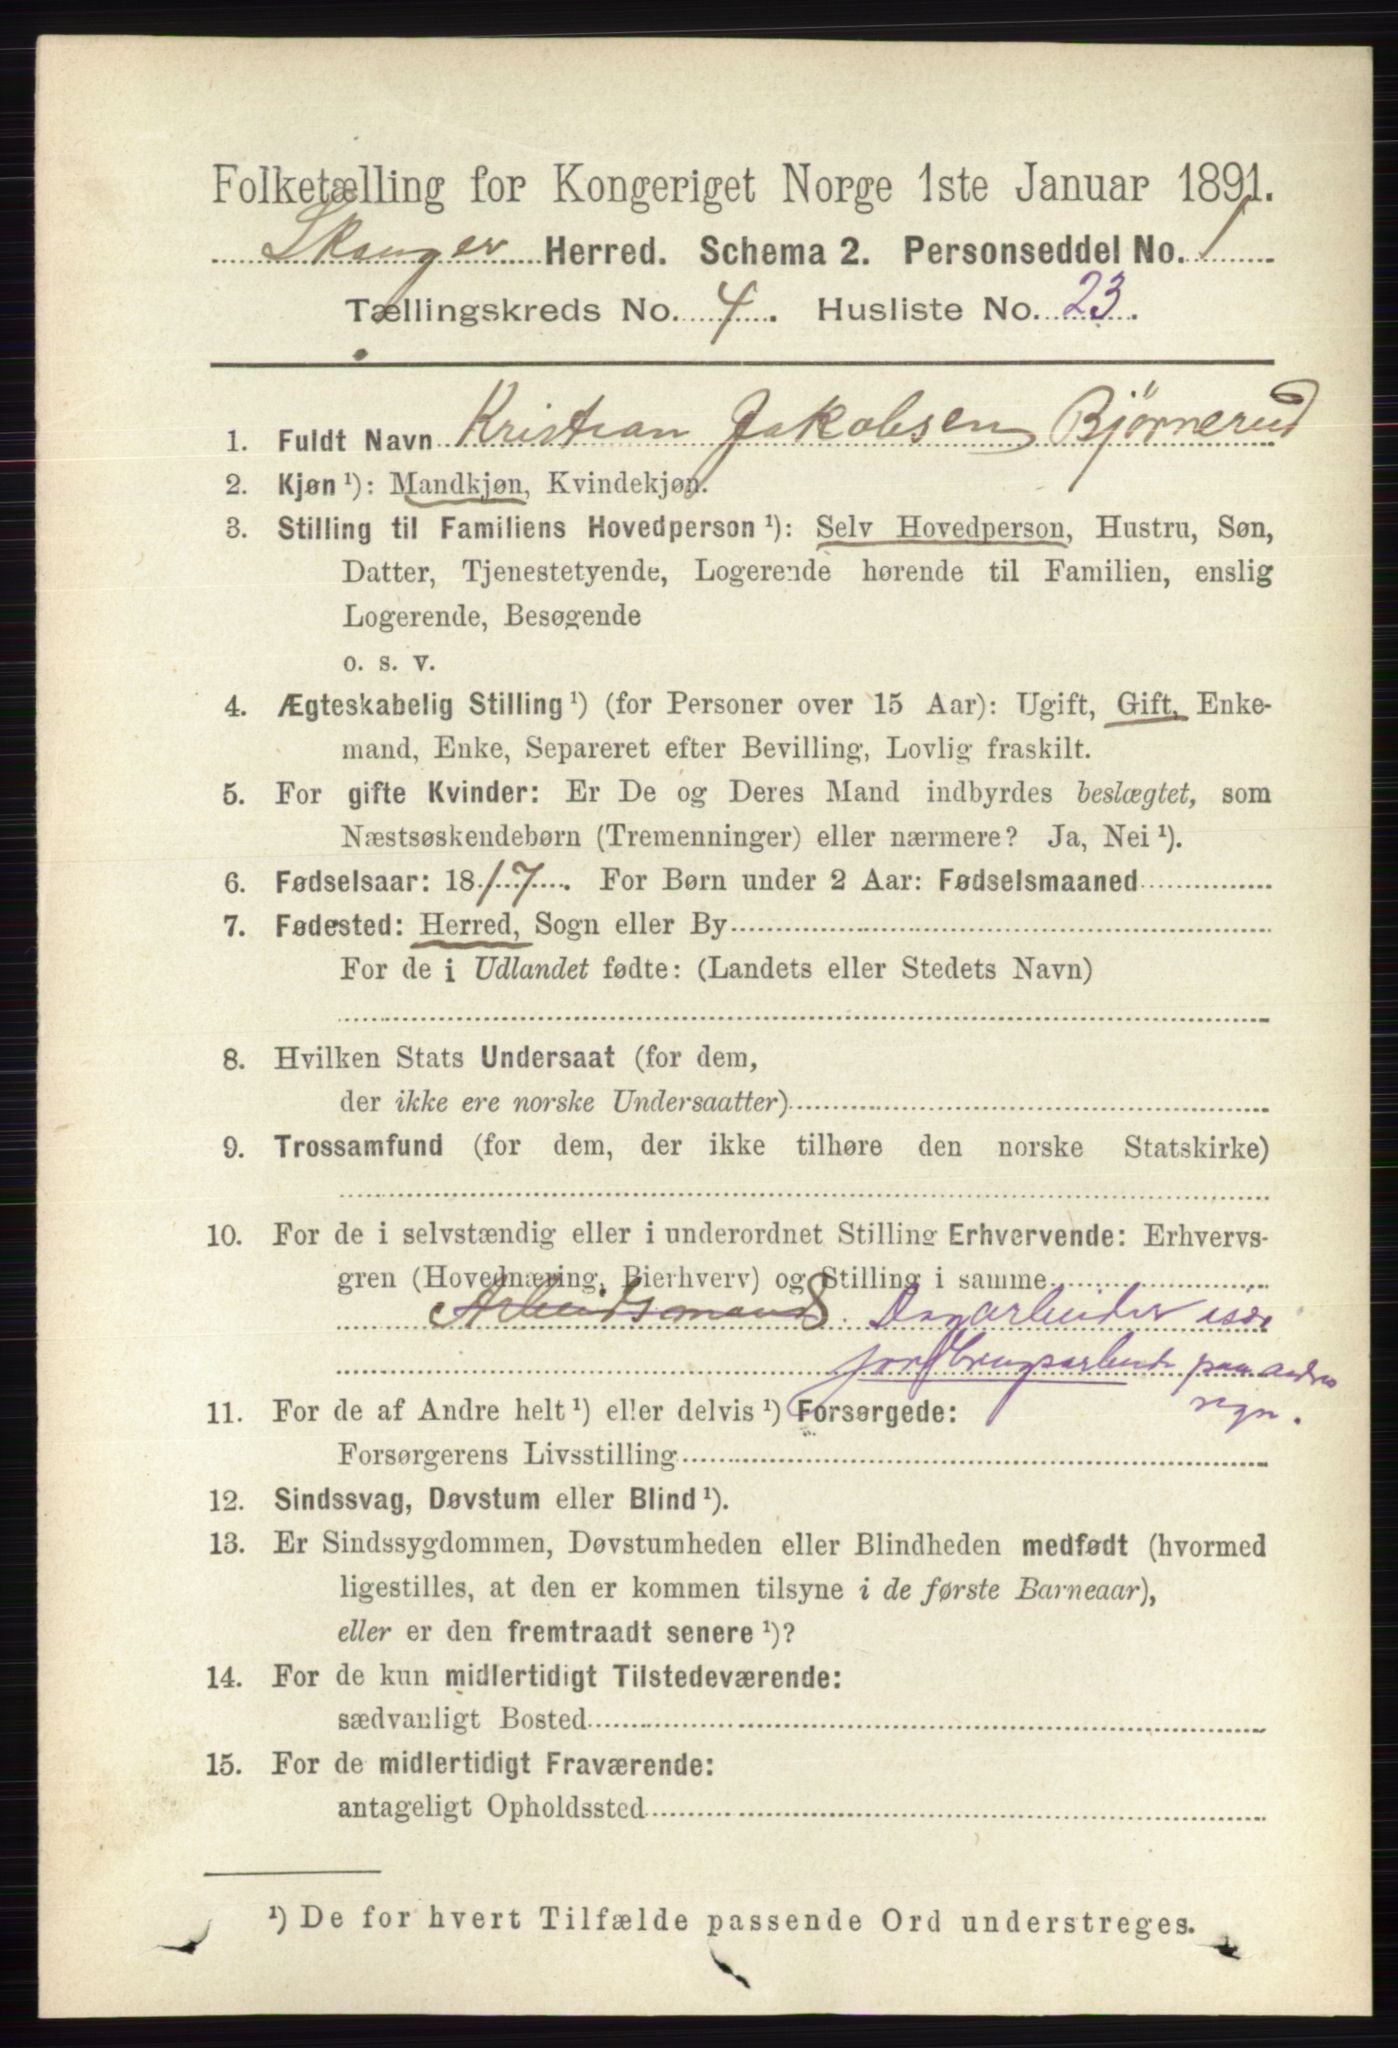 Folketælling for Kongeriget Norge 1ste Januar 1891.
Skauger Herred. Schema 2. Personseddel No. 1
Tællingskreds No. 4. Husliste No. 23.
1. Fuldt Navn Kristian Jakobsen Bjørnerud
2. Kjøn ¹): Mandkjøn, Kvindekjøn.
3. Stilling til Familiens Hovedperson ¹): Selv Hovedperson, Hustru, Søn,
Datter, Tjenestetyende, Logerende hørende til Familien, enslig
Logerende, Besøgende
o. s. v.
4. Ægteskabelig Stilling ¹) (for Personer over 15 Aar): Ugift, Gift, Enke-
mand, Enke, Separeret efter Bevilling, Lovlig fraskilt.
5. For gifte Kvinder: Er De og Deres Mand indbyrdes beslægtet, som
Næstsøskendebørn (Tremenninger) eller nærmere? Ja, Nei ¹).
6. Fødselsaar: 1817. For Børn under 2 Aar: Fødselsmaaned
7. Fødested: Herred, Sogn eller By
For de i Udlandet fødte: (Landets eller Stedets Navn)
8. Hvilken Stats Undersaat (for dem,
der ikke ere norske Undersaatter)
9. Trossamfund (for dem, der ikke tilhøre den norske Statskirke)
10. For de i selvstændig eller i underordnet Stilling Erhvervende: Erhvervs-
gren (Hovednæring, Bierhverv) og Stilling i samme
Arbeidsmand. Dagarbeider især
jordbrugsarbeide paa andres
11. For de af Andre helt ¹) eller delvis ¹) Forsørgede:
Forsørgerens Livsstilling
12. Sindssvag, Døvstum eller Blind ¹).
13. Er Sindssygdommen, Døvstumheden eller Blindheden medfødt (hvormed
ligestilles, at den er kommen tilsyne i de første Barneaar),
eller er den fremtraadt senere ¹)?
14. For de kun midlertidigt Tilstedeværende:
sædvanligt Bosted
15. For de midlertidigt Fraværende:
antageligt Opholdssted
¹) De for hvert Tilfælde passende Ord understreges.